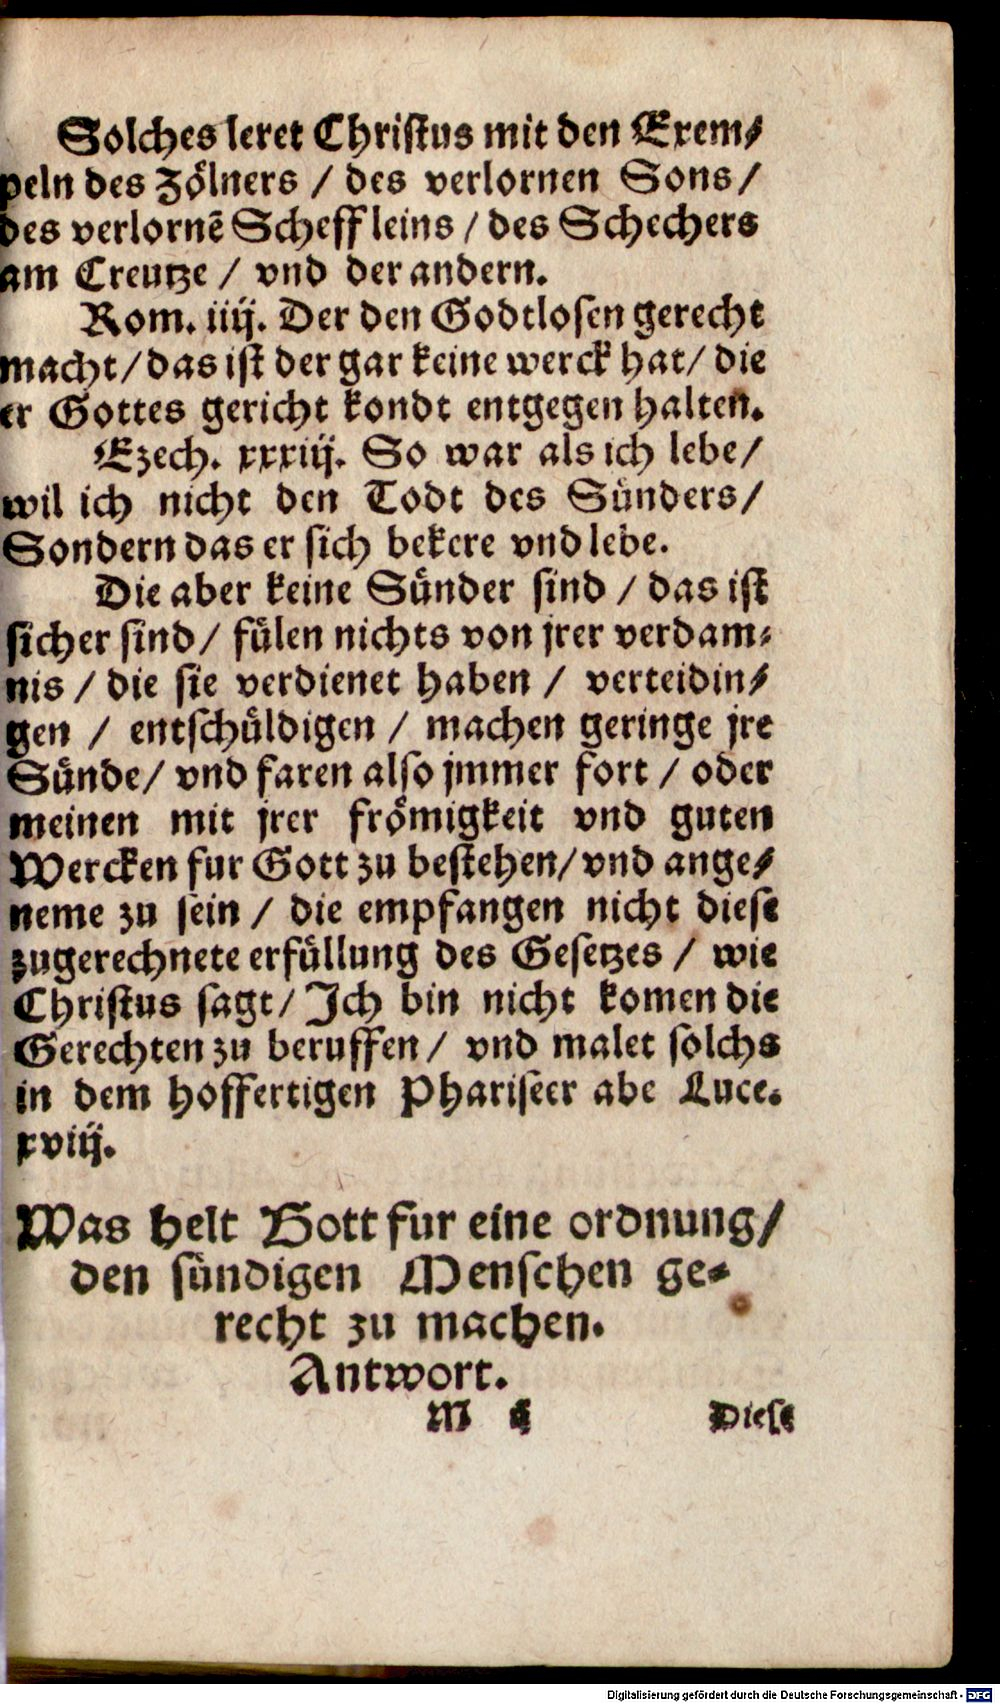 Solches leret Christus mit den Exem⸗
peln des Zölners / des verlornen Sons /
des verlornẽ Scheffleins / des Schechers
am Creutze / vnd der andern.
Rom. iiij. Der den Godtlosen gerecht
macht / das ist der gar keine werck hat / die
er Gottes gericht kondt entgegen halten.
Ezech. xxxiij. So war als ich lebe /
wil ich nicht den Todt des Sünders /
Sondern das er sich bekere vnd lebe.
Die aber keine Sünder sind / das ist
sicher sind / fülen nichts von jrer verdam⸗
nis / die sie verdienet haben / verteidin⸗
gen / entschüldigen / machen geringe jre
Sünde / vnd faren also jmmer fort / oder
meinen mit jrer frömigkeit vnd guten
Wercken fur Gott zu bestehen / vnd ange⸗
neme zu sein / die empfangen nicht diese
zugerechnete erfüllung des Gesetzes / wie
Christus sagt / Ich bin nicht komen die
Gerechten zu beruffen / vnd malet solchs
in dem hoffertigen Phariseer abe Luce.
xviij.
Was helt Gott fur eine ordnung /
den sündigen Menschen ge⸗
recht zu machen.
Antwort.
M
Diese
Digitalisierung gefördert durch die Deutsche Forschungsgemeinschaft - DFG